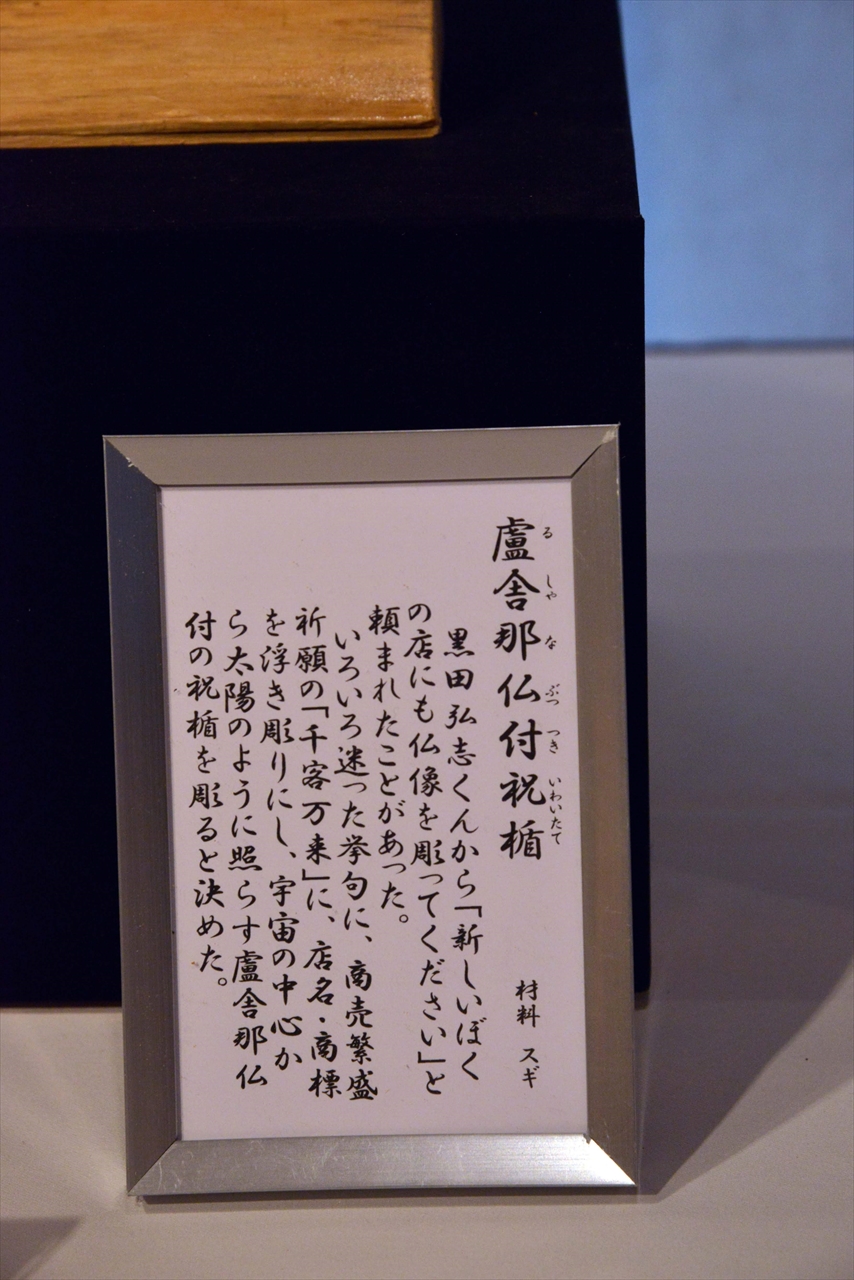 盧舎那仏付祝楯
るしゃなぶつつきいわいたて
材料 スギ
黒田弘志くんから「新しいぼく
の店にも仏像を彫ってください」と
頼まれたことがあった。
いろいろ迷った挙句に、商売繁盛
祈願の「千客万来」に、店名・商標
を浮き彫りにし、宇宙の中心か
ら太陽のように照らす盧舎那仏
付の祝楯を彫ると決めた。